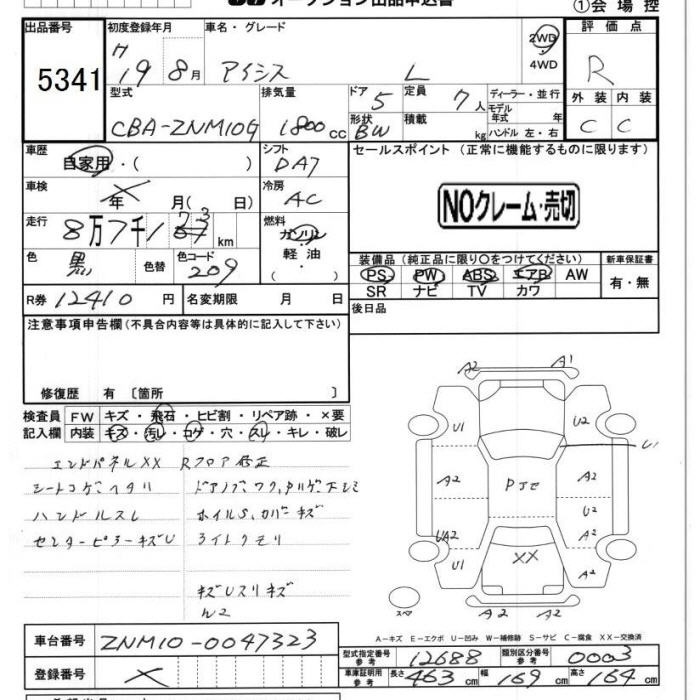 オークション出品申込書
①会場控
出品番号
5341
初度登録年月
19 8月
車名・グレード
アイシス L
2WD
4WD
評価点
R
外装 内装
C C
型式
CBA-ZNM10G
排気量
1800cc
ドア 5
形状 BW
定員 7人
積載 kg
ディーラー・並行
モデル年式 年
ハンドル 左・右
車歴
自家用・( )
シフト
DA7
セールスポイント (正常に機能するものに限ります)
NOクレーム・売切
車検
年 月( 日)
冷房
AC
走行
8万7千1 km
燃料
ガソリン
軽油
( )
色
黒
色替
色コード
209
R券 12410円
名変期限 月 日
装備品 (純正品に限り〇をつけてください)
新車保証書
PS PW ABS エアB AW
SR ナビ TV カワ
有・無
後日品
注意事項申告欄(不具合内容等は具体的に記入して下さい)
修復歴 有〔箇所 〕
検査員
記入欄
FW キズ・飛石・ヒビ割・リペア跡・×要
内装 キズ・汚レ・コゲ・穴・スレ・キレ・破レ
エンドパネルXX Rフロア修正
シートコゲ、ヘタリ
ハンドルスレ
ホイルS、カバーキズ
センターピラーキズU
ライトクモリ
キズUスリキズ
A2 A1
U1 U2 U1
A2 A2
U2
UA2 A2
U1 XX A2
A2 A2
スペア
A-キズ E-エクボ U-凹み W-補修跡 S-サビ C-腐食 XX-交換済
車台番号
ZNM10-0047323
登録番号
型式指定番号
参考
12688
類別区分番号
参考
0003
車庫証明用
参考
長さ 463cm 幅 169cm 高さ 164cm